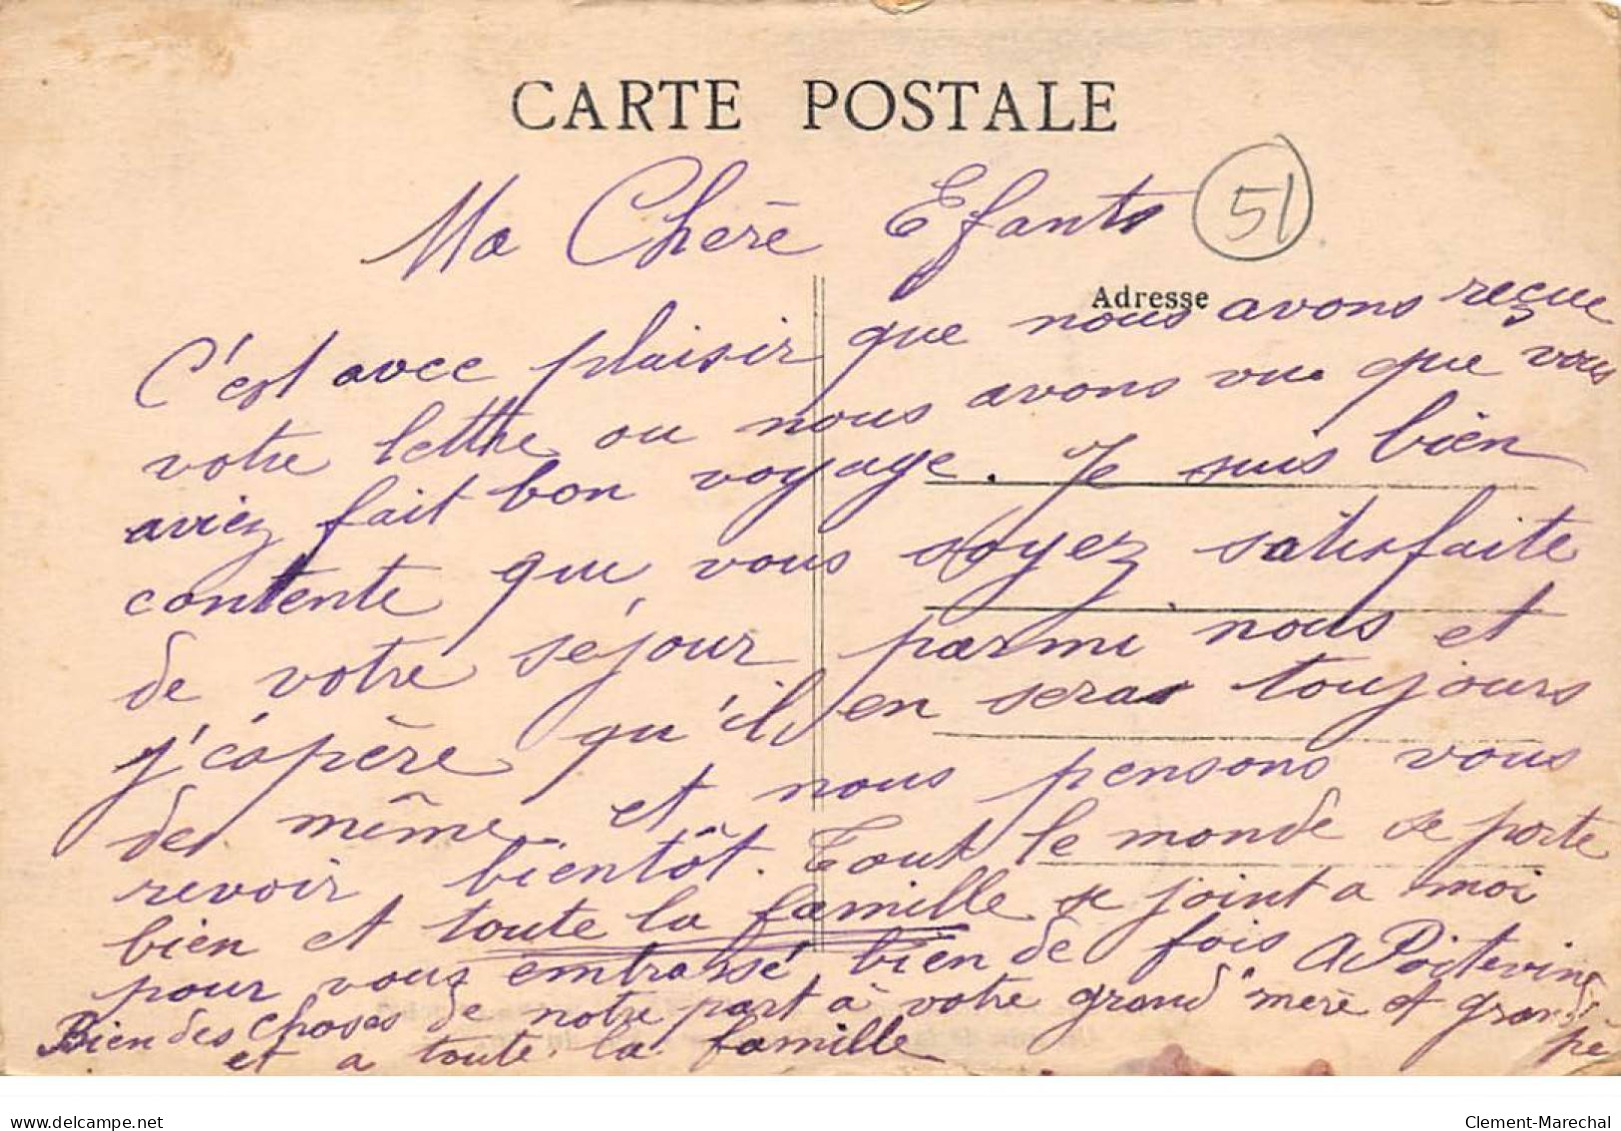 CARTE POSTALE
Ma Chère Efants
51
Adresse
C'est avec plaisir que nous avons reçue
votre lettre ou nous avons vu que vous
aviez fait bon voyage. Je suis bien
contente que vous soyez satisfaite
de votre séjour parmi nous et
j'éspère qu'il en seras toujours
de même et nous pensons vous
revoir bientôt. Tout le monde se porte
bien et toute la famille se joint a moi
pour vous embrassé bien de fois A Poitevin
Bien des choses de notre part à votre grand mère et grand
pè
et a toute la famille
delcampe.net
Clement-Marechal